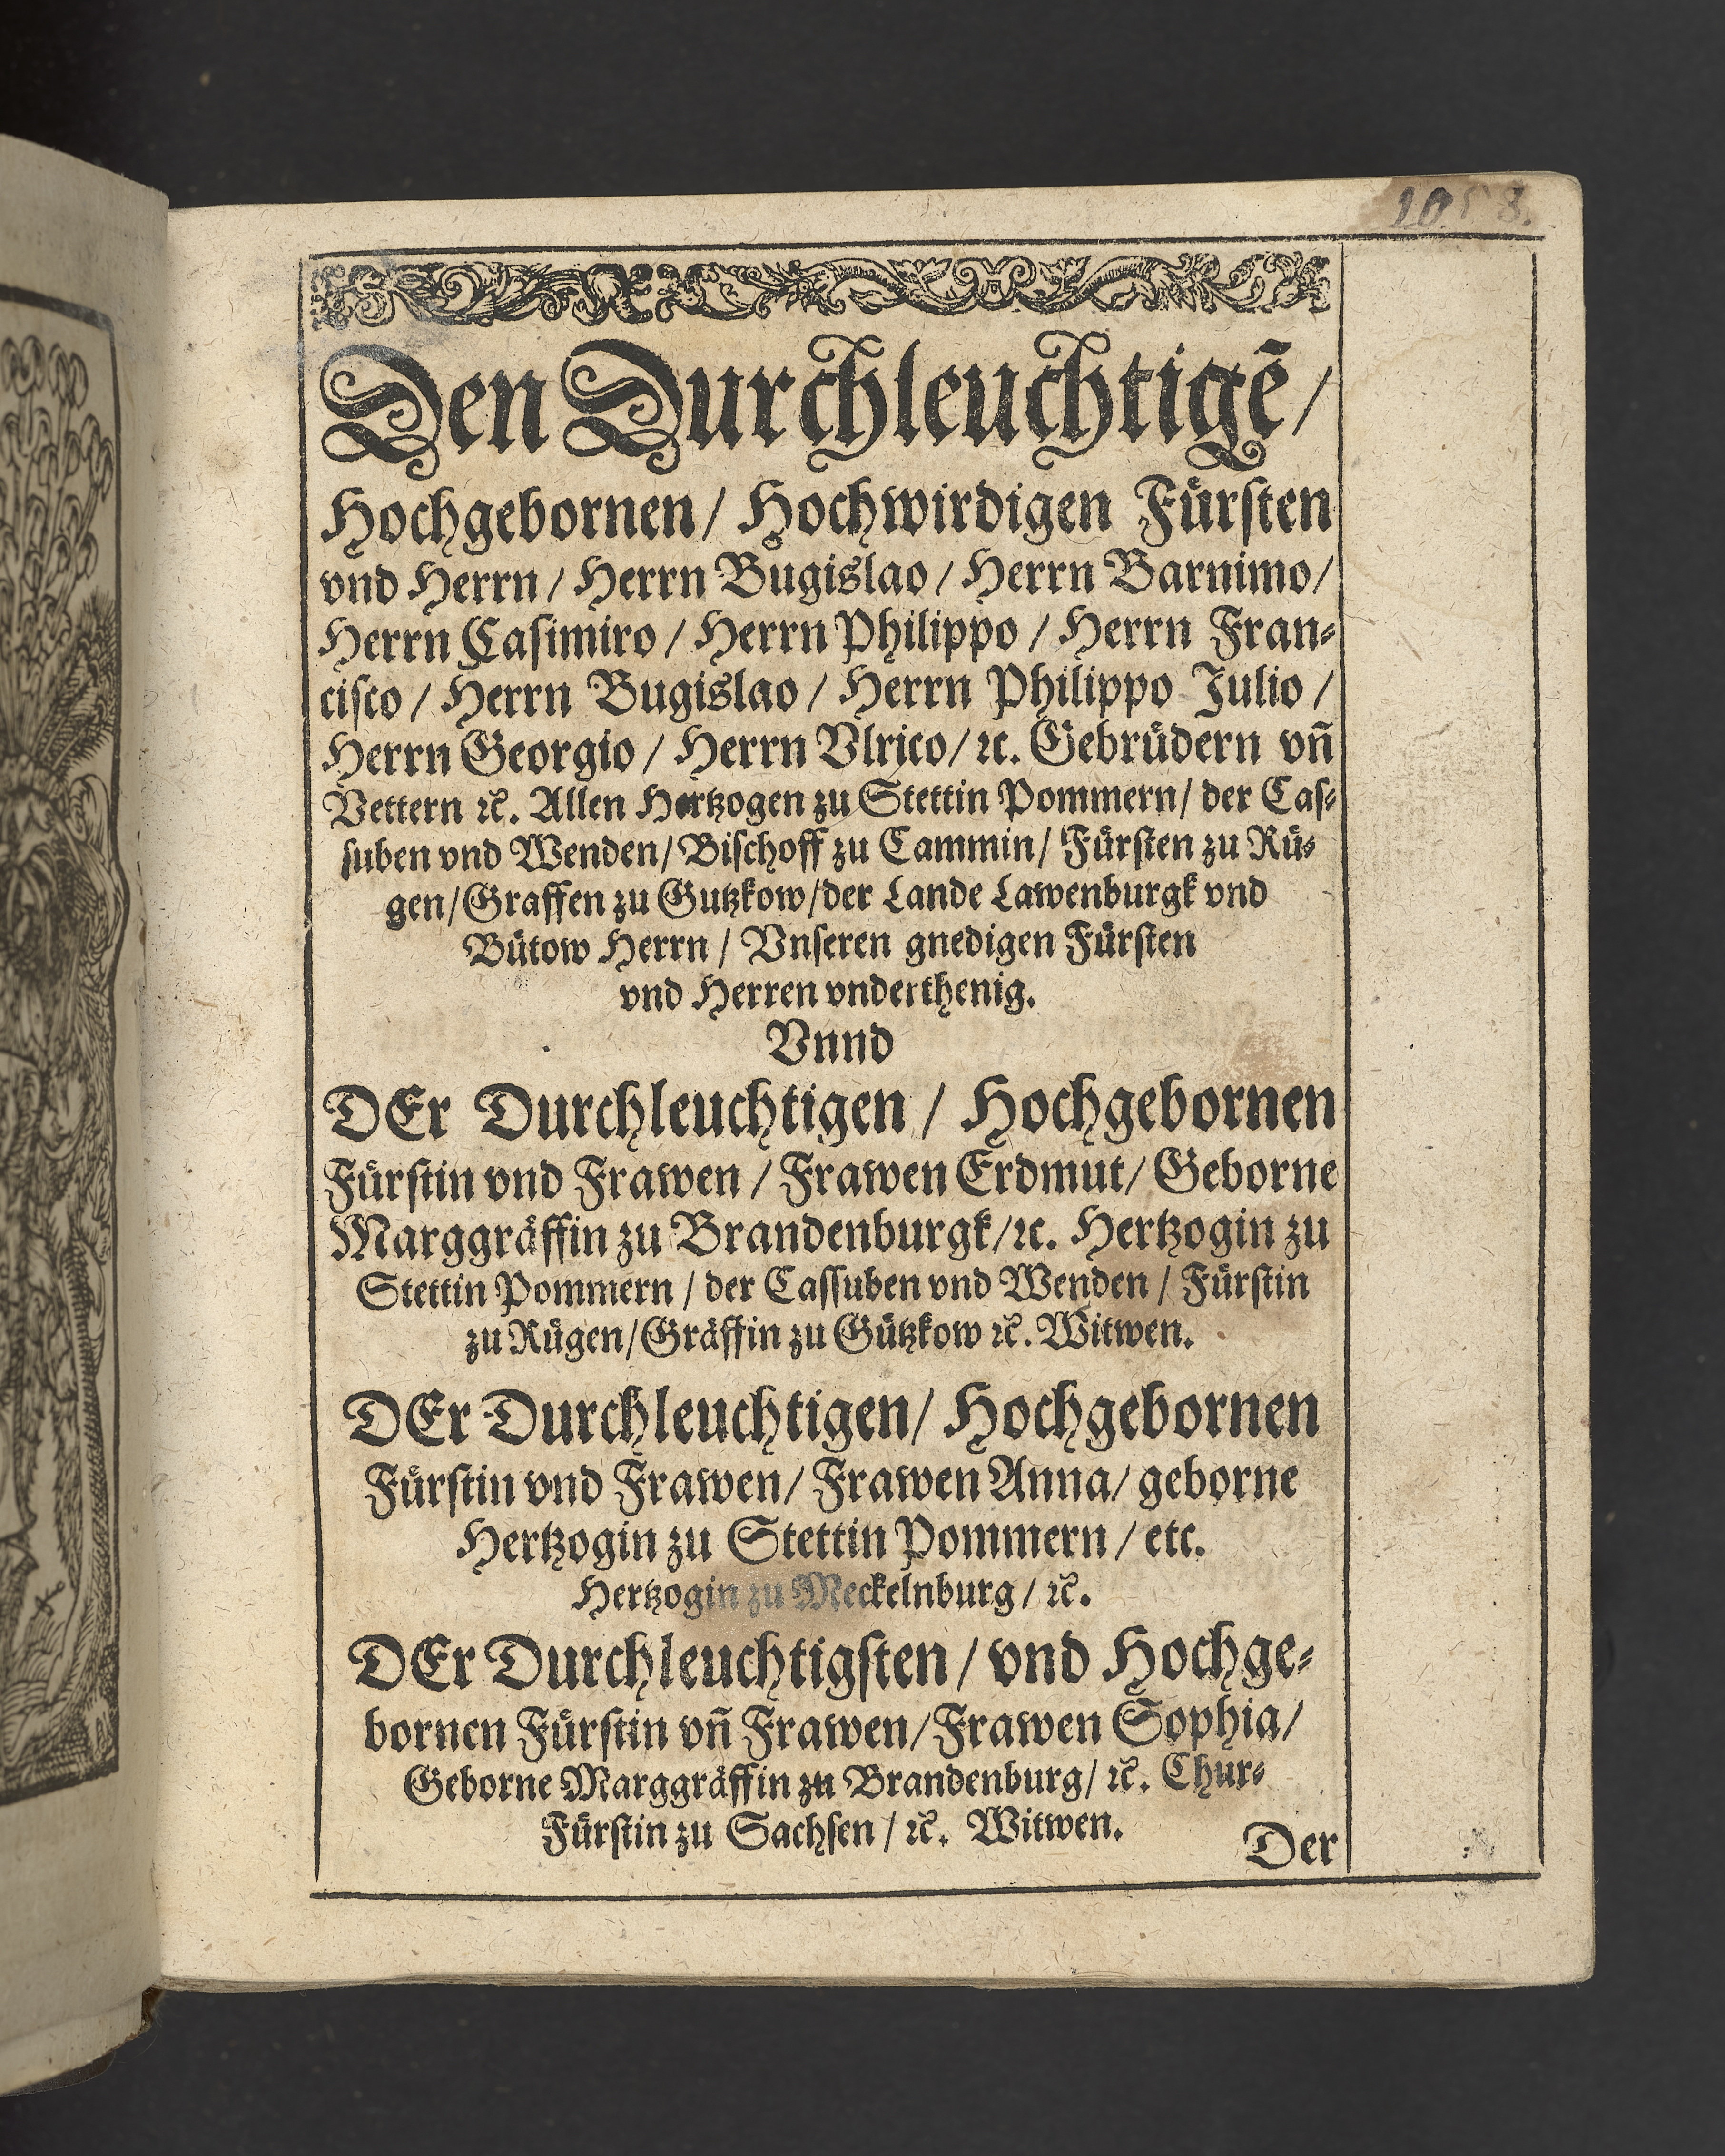 Den Durchleuchtigẽ /
Hochgebornen / Hochwirdigen Fürsten
vnd Herrn / Herrn Bugislao / Herrn Barnimo /
Herrn Casimiro / Herrn Philippo / Herrn Fran⸗
cisco / Herrn Bugislao / Herrn Philippo Julio /
Herrn Georgio / Herrn Vlrico / ꝛc. Gebrüdern vñ
Vettern ꝛc. Allen Hertzogen zu Stettin Pommern / der Cas⸗
suben vnd Wenden / Bischoff zu Cammin / Fürsten zu Rü⸗
gen / Graffen zu Gutzkow / der Lande Lawenburgk vnd
Bütow Herrn / Vnseren gnedigen Fürsten
vnd Herren vnderthenig.
Vnnd
DEr Durchleuchtigen / Hochgebornen
Fürstin vnd Frawen / Frawen Erdmut / Geborne
Marggräffin zu Brandenburgk / ꝛc. Hertzogin zu
Stettin Pommern / der Cassuben vnd Wenden / Fürstin
zu Rügen / Gräffin zu Gützkow ꝛc. Witwen.
DEr Durchleuchtigen / Hochgebornen
Fürstin vnd Frawen / Frawen Anna / geborne
Hertzogin zu Stettin Pommern / etc.
Hertzogin zu Meckelnburg / ꝛc.
DEr Durchleuchtigsten / vnd Hochge⸗
bornen Fürstin vñ Frawen / Frawen Sophia /
Geborne Marggräffin zu Brandenburg / ꝛc. Chur⸗
Fürstin zu Sachsen / ꝛc. Witwen.
Der